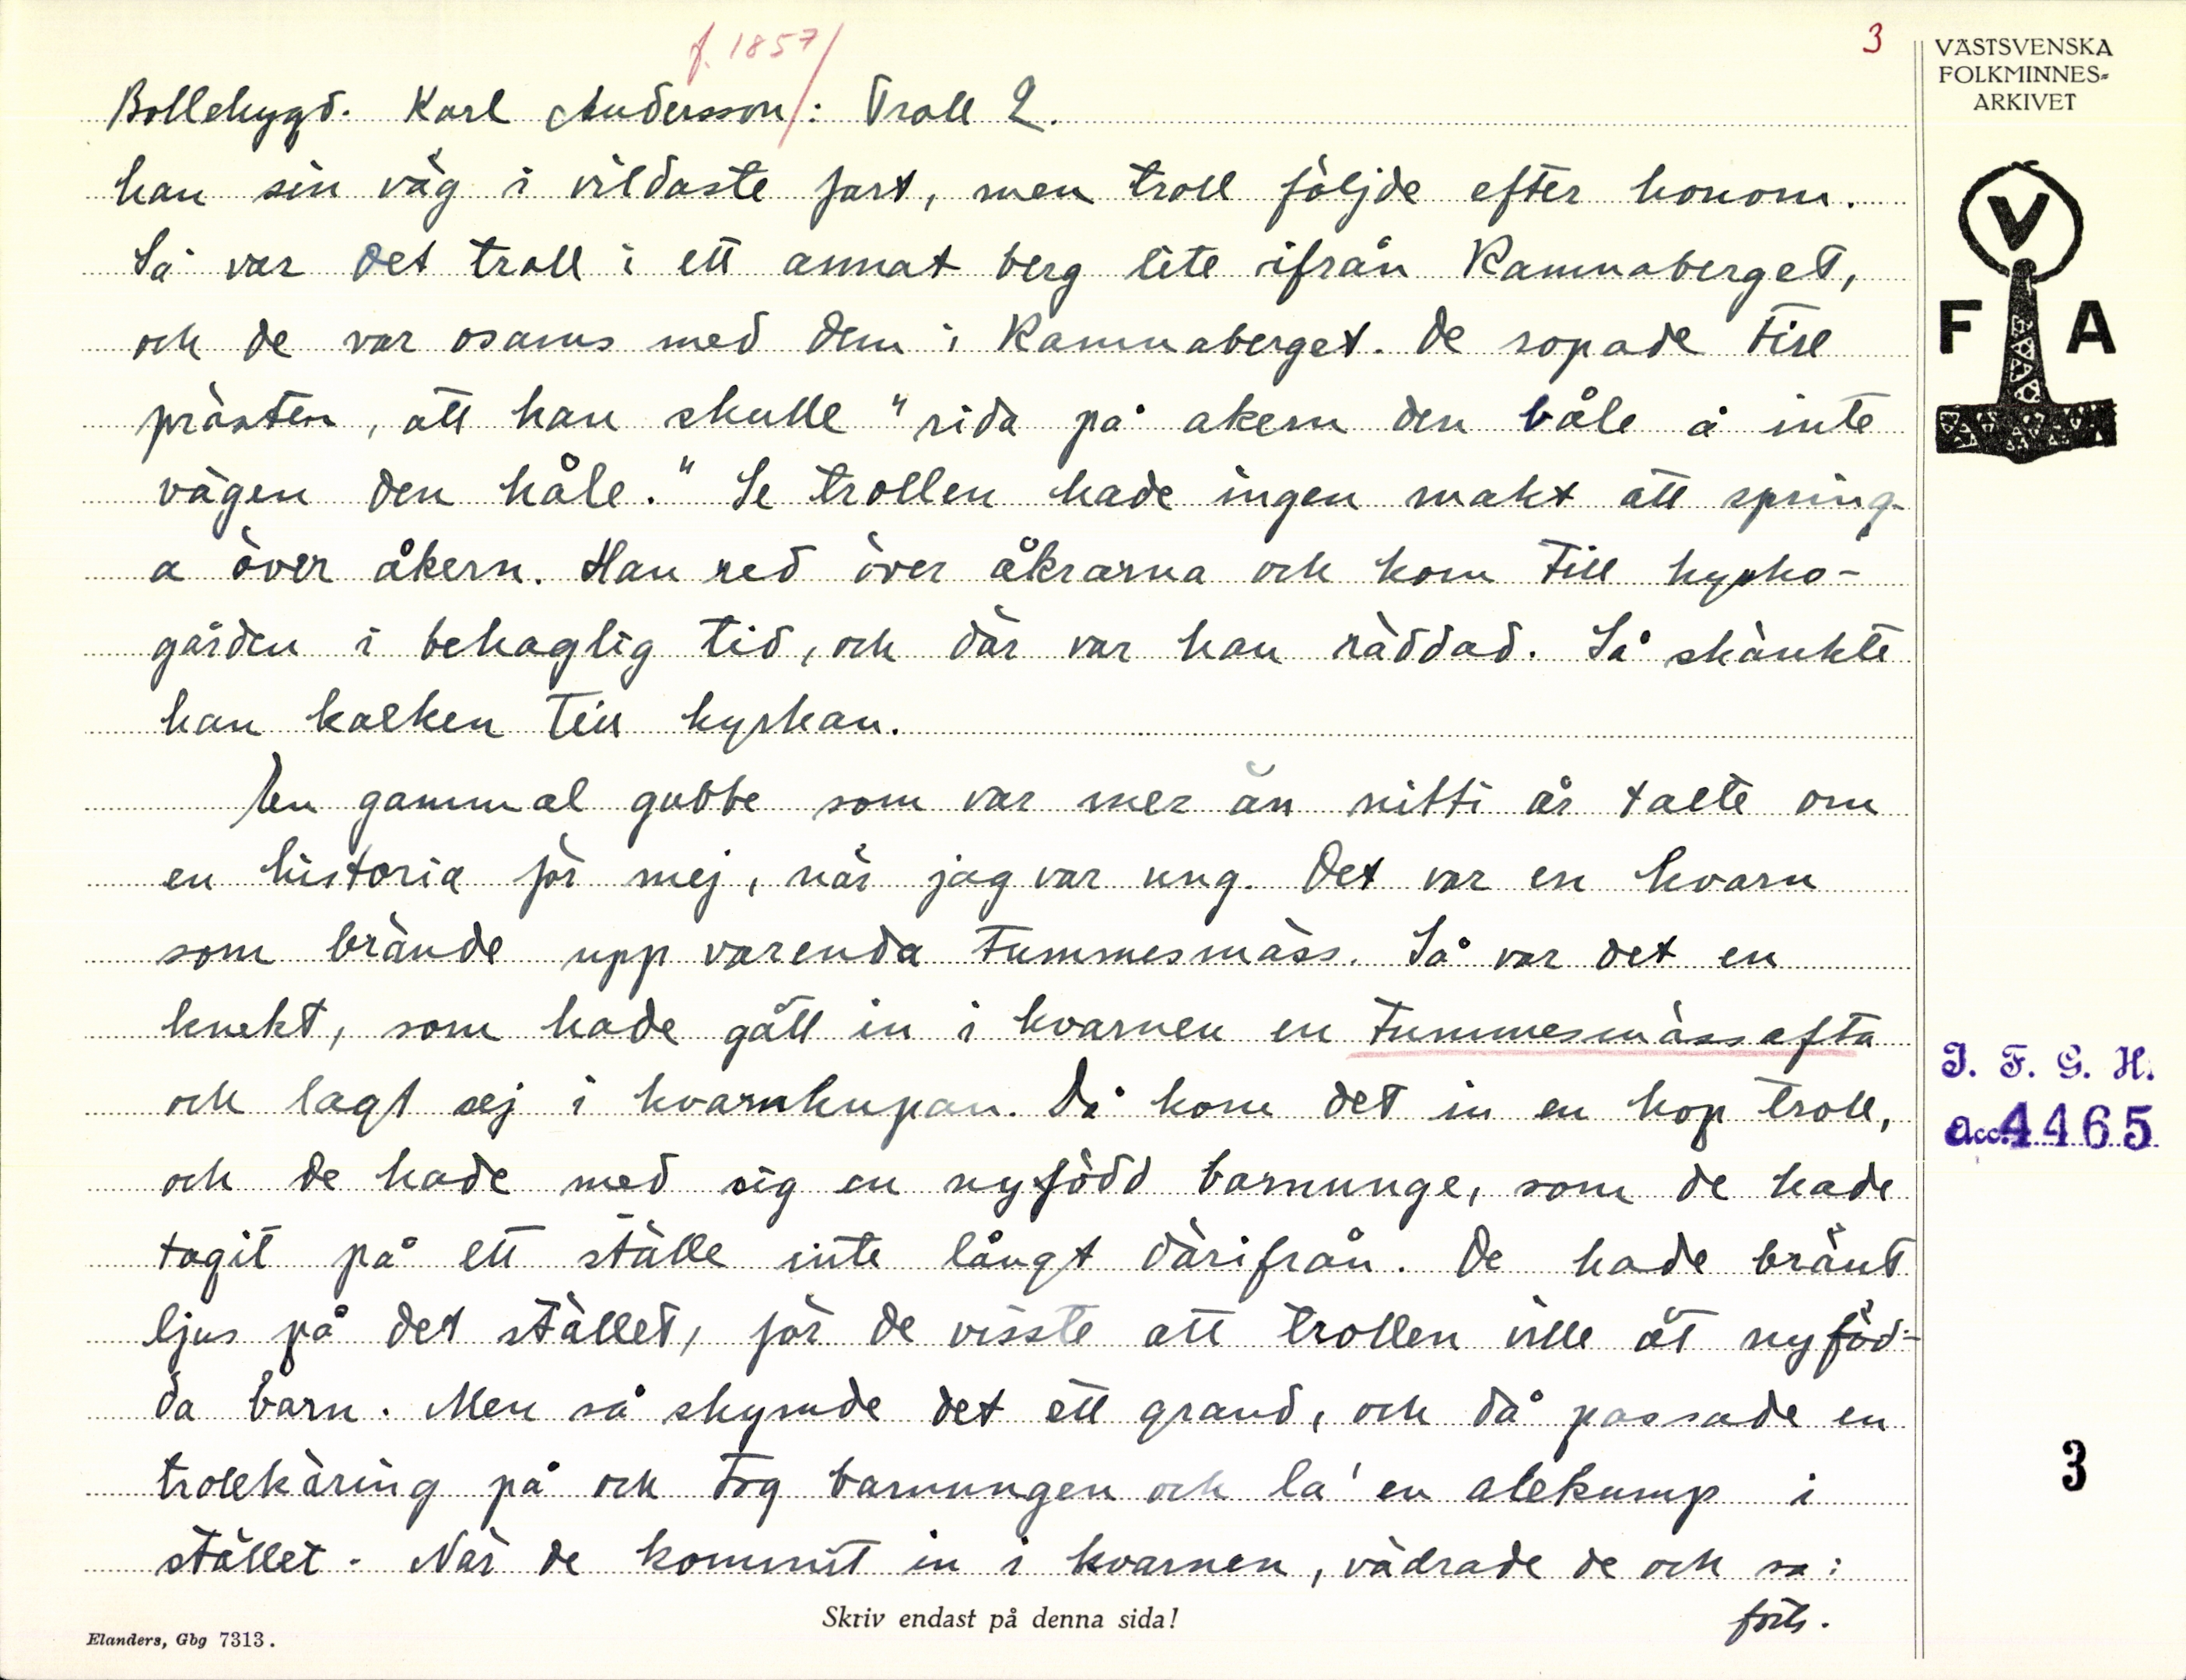 f. 1857/
3
Bollebygd. Karl Andersson/: Troll 2.
han sin väg i vildaste fart, men troll följde efter honom.
Så var det troll i ett annat berg lite ifrån Ramnaberget,
och de var osams med dem i Ramnaberget. De ropade till
prästen, att han skulle "rida på akern den båle å inte
vägen den håle." Se trollen hade ingen makt att spring-
a över åkern. Han red över åkrarna och kom till kyrko-
gården i behaglig tid, och där var han räddad. Så skänkte
han kalken till kyrkan.
En gammal gubbe som var mer än nitti år talte om
en historia för mej, när jag var ung. Det var en kvarn
som brände upp varenda Tummesmäss. Så var det en
knekt, som hade gått in i kvarnen en Tummesmässafta
och lagt sej i kvarnkupan. Då kom det in en hop troll,
och de hade med sig en nyfödd barnunge, som de hade
tagit på ett ställe inte långt därifrån. De hade bränt
ljus på det stället, för de visste att trollen ville åt nyföd-
da barn. Men så skymde det ett grand, och då passade en
trollkäring på och tog barnungen och la' en alekump i
stället. När de kommit in i kvarnen, vädrade de och sa:
forts.
Skriv endast på denna sida!
Elanders, Gbg 7313.
VÄSTSVENSKA
FOLKMINNES-
ARKIVET
V
F A
I. F. G. H.
Acc. 4465
3